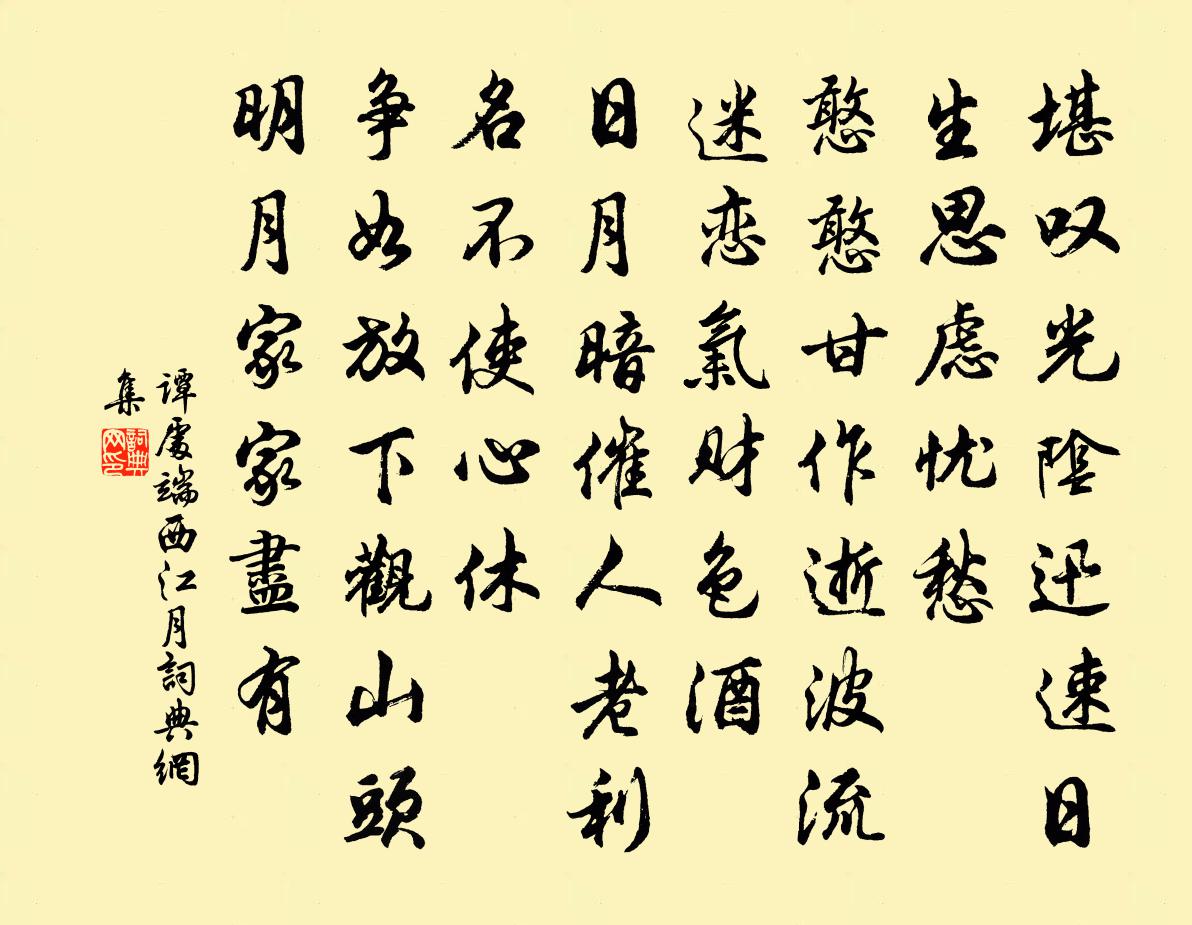 堪叹光陰迅速日
生思慮忧愁
憨憨甘作逝波流
迷恋氣财色酒
日月暗催人老利
名不使心休
争如放下觀山頭
明月家家盡有
谭處端西江月詞典網
集
詞典网印